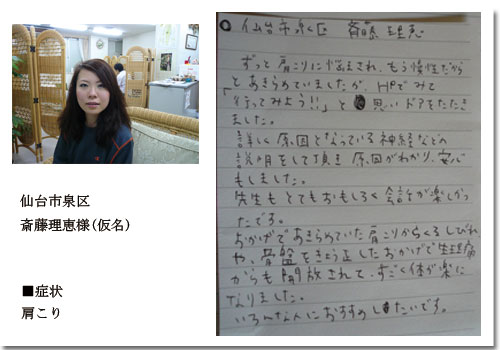 仙台市泉区
斎藤理恵様(仮名)
■症状
肩こり
○仙台市泉区 斉藤理恵
ずっと肩こりに悩まされ、もう慢性だから
とあきらめていましたが、HPでみて
「行ってみよう!!」と 思いドアをたたき
ました。
詳しく原因となっている神経などの
説明をして頂き原因がわかり、安心
もしました。
先生もとてもおもしろく会話が楽しかっ
たです。
おかげであきらめていた肩こりからくるしびれ
や、骨盤をきょう正したおかげで生理痛
からも開放されて、すごく体が楽に
なりました。
いろんな人におすすめしたいです。